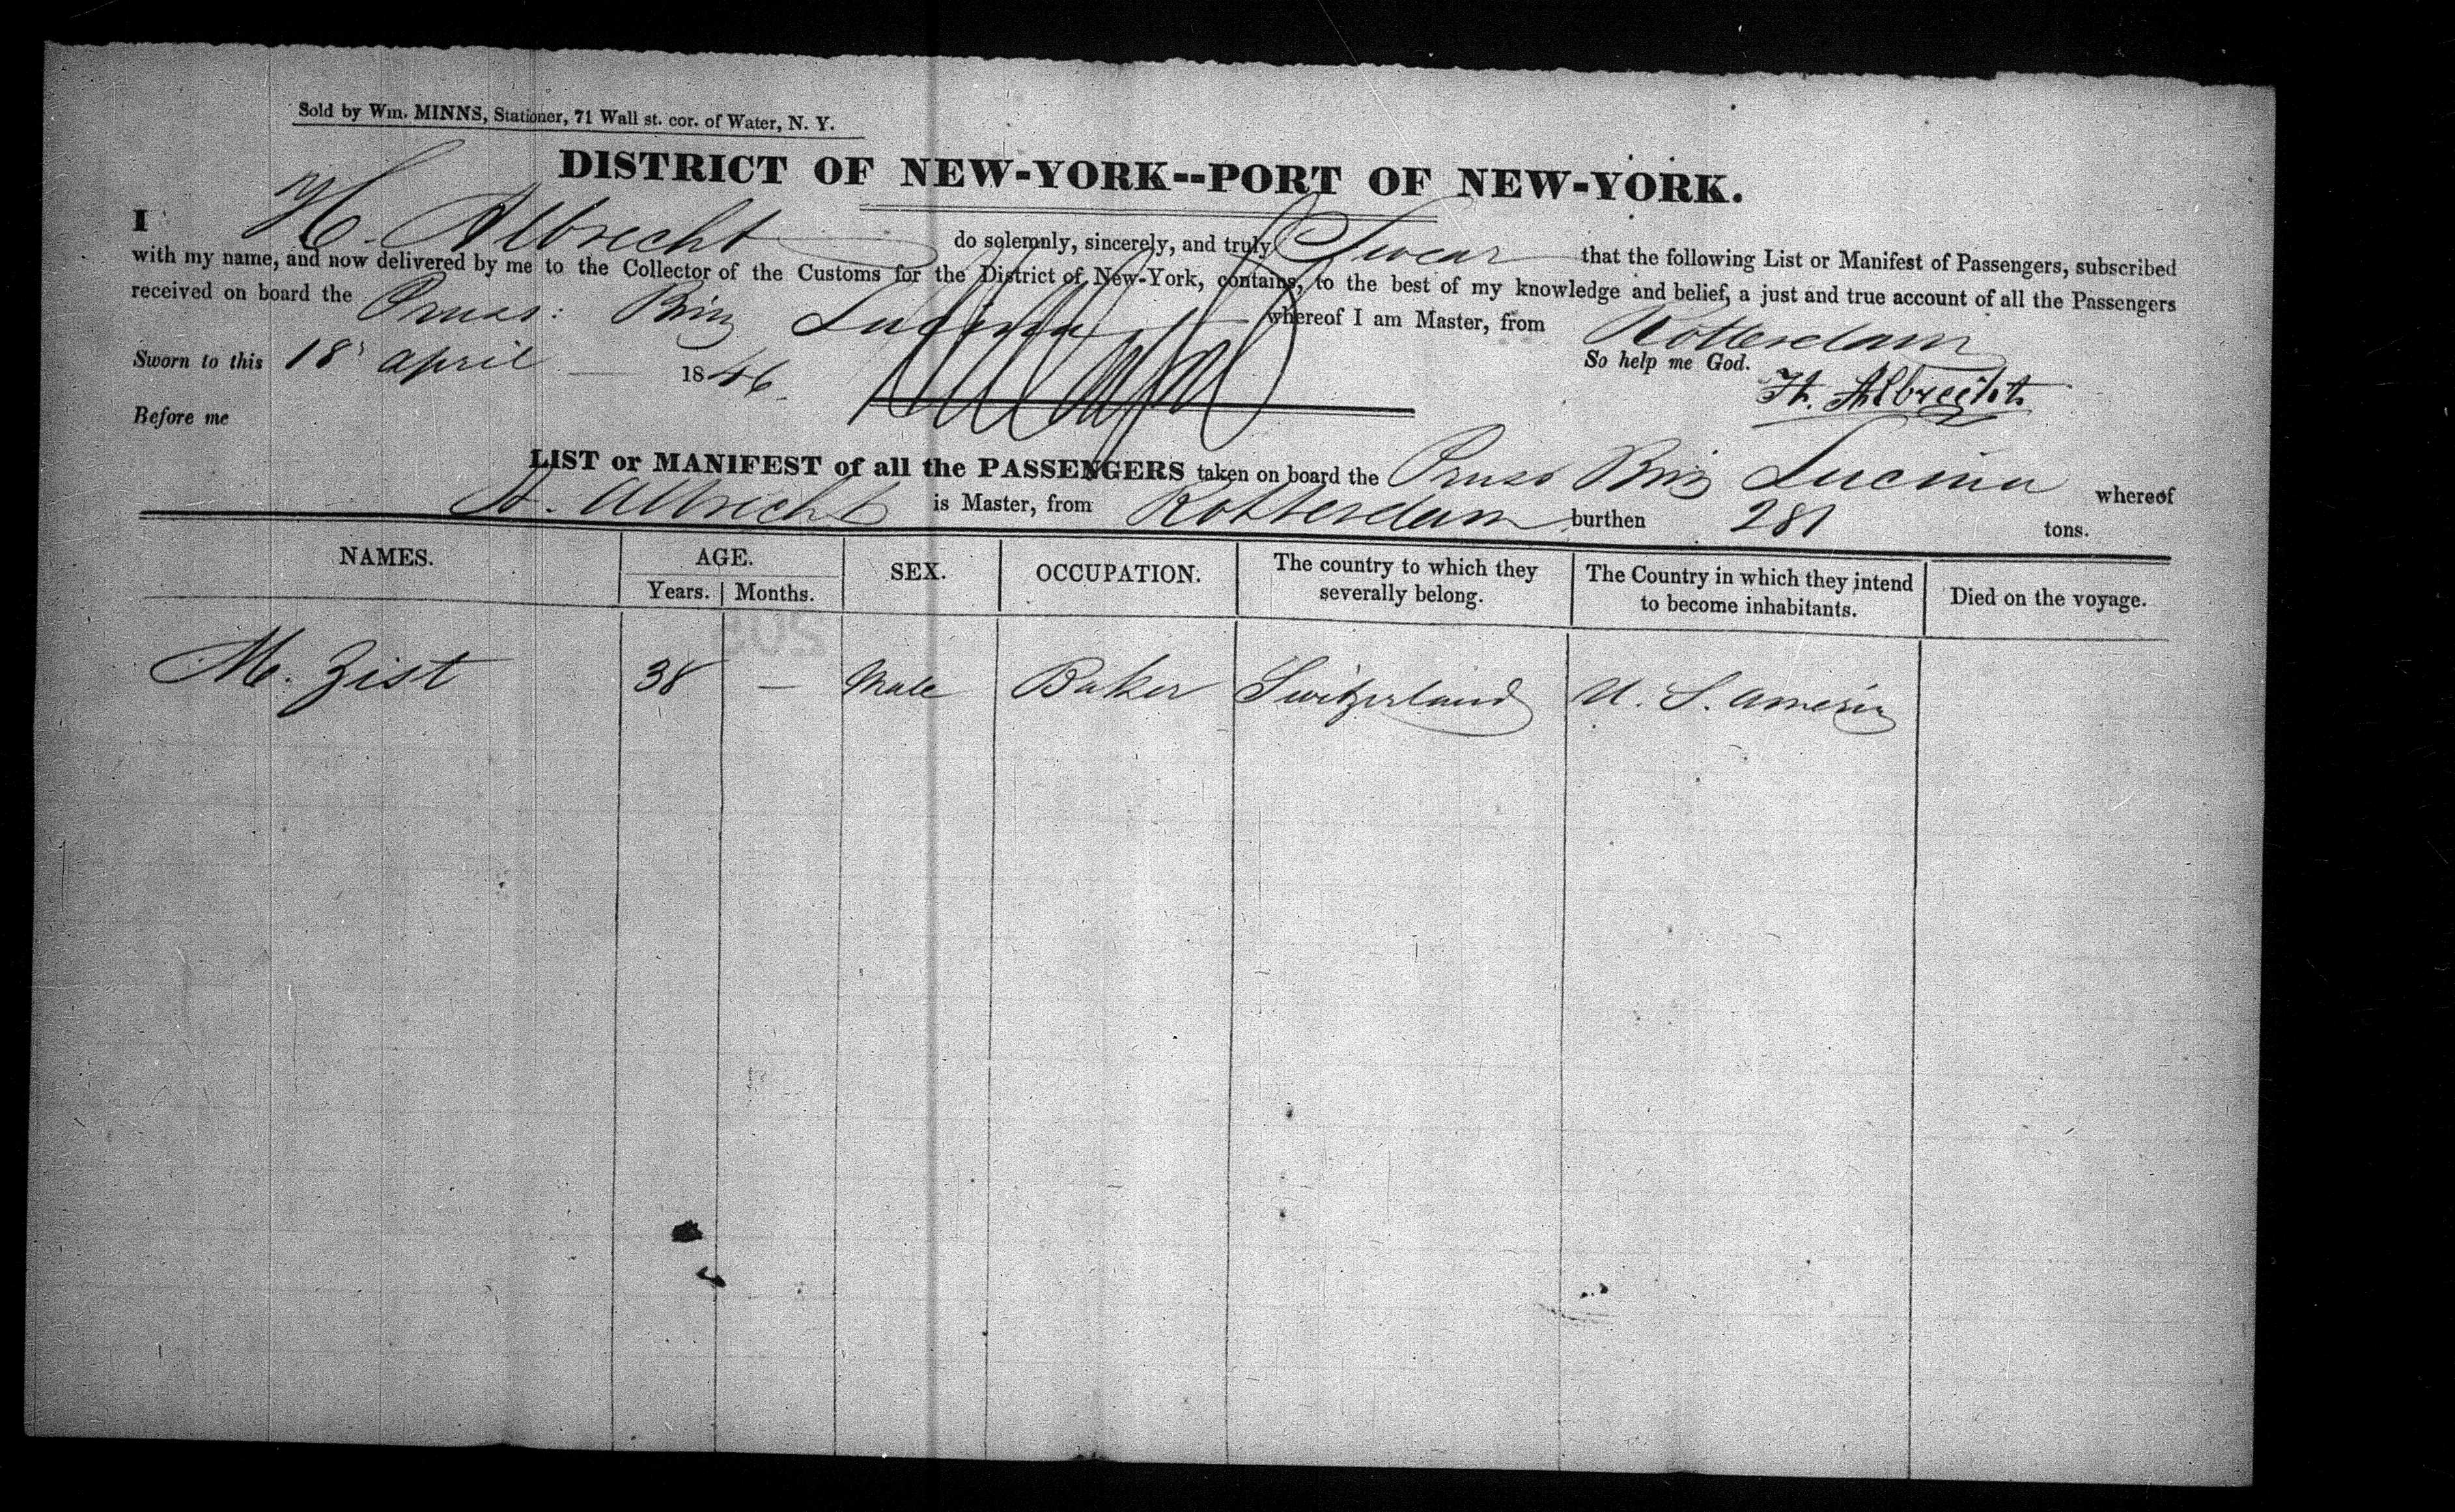 Sold by Wm. MINNS, Stationer, 71 Wall st. cor. of Water, N. Y.
DISTRICT OF NEW-YORK--PORT OF NEW-YORK.
I H. Albrecht do solemnly, sincerely, and truly Swear that the following List or Manifest of Passengers, subscribed
with my name, and now delivered by me to the Collector of the Customs for the District of New-York, contains, to the best of my knowledge and belief, a just and true account of all the Passengers
received on board the Pruss: Brig Lucina whereof I am Master, from Rotterdam
Sworn to this 18 april 1846. So help me God.
H. Albrecht
Before me
LIST or MANIFEST of all the PASSENGERS taken on board the Pruss Brig Lucina whereof
H. Albrecht is Master, from Rotterdam burthen 281 tons.
NAMES. AGE. SEX. OCCUPATION. The country to which they severally belong. The Country in which they intend to become inhabitants. Died on the voyage.
Years. Months.
M. Zist 38 — Male Baker Switzerland U. S. America